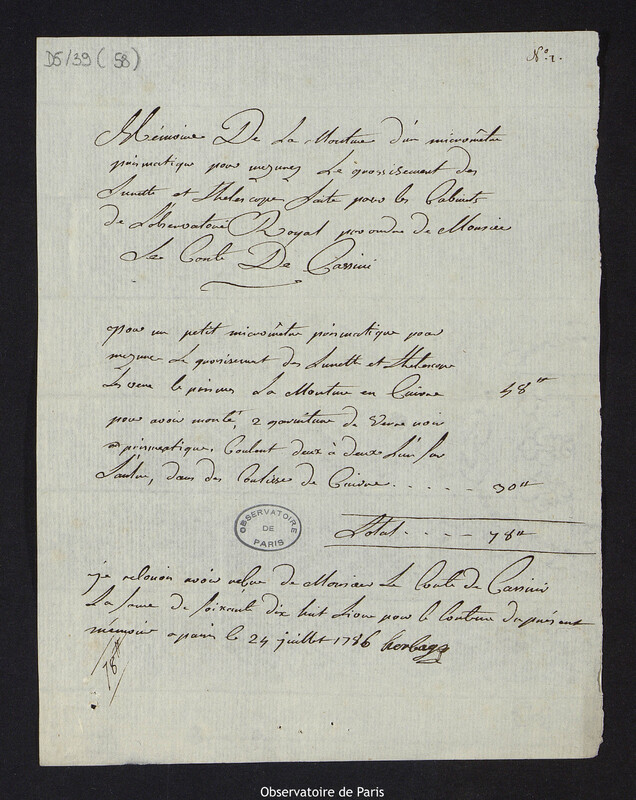 D5/39 (58)
N.° 1.
Mémoire De La Monture d'un micromètre
prismatique pour mezurer Le grossisement des
Lunette et thelescope faite pour les Cabinets
de L'observatoire Royal par ordre de Monsieur
Le Conte De Cassini
pour un petit micromètre prismatique pour
mezurer Le grossisement des Lunette et thelescope
Les verre le prismes La Monture en Cuivre 48ᵗᵗ
pour avoir monté, 2 garniture de Verre noir
prismatique, Coulant deux à deux L'un sur
L'autre, dans des Coulisse de Cuivre . . . . . 30ᵗᵗ
OBSERVATOIRE
DE
PARIS
Total . . . . 78ᵗᵗ
je avoir de Monsieur Le Conte de Cassini
La some de soixante dix huit Livre pour le Contenu du présent
mémoire a paris le 24 juillet 1786
78ᵗᵗ
Observatoire de Paris